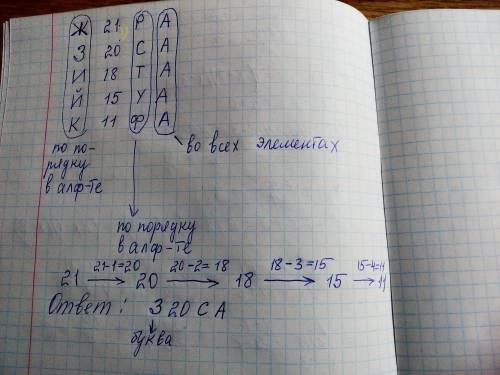 Ж 21 Р А
З 20 С А
И 18 Т А
Й 15 У А
К 11 Ф А
по по-
рядку
в алф-те
во всех элементах
по порядку
в алф-те
21-1=20 20-2=18 18-3=15 15-4=11
21 → 20 → 18 → 15 → 11
Ответ: З 20 С А
буква